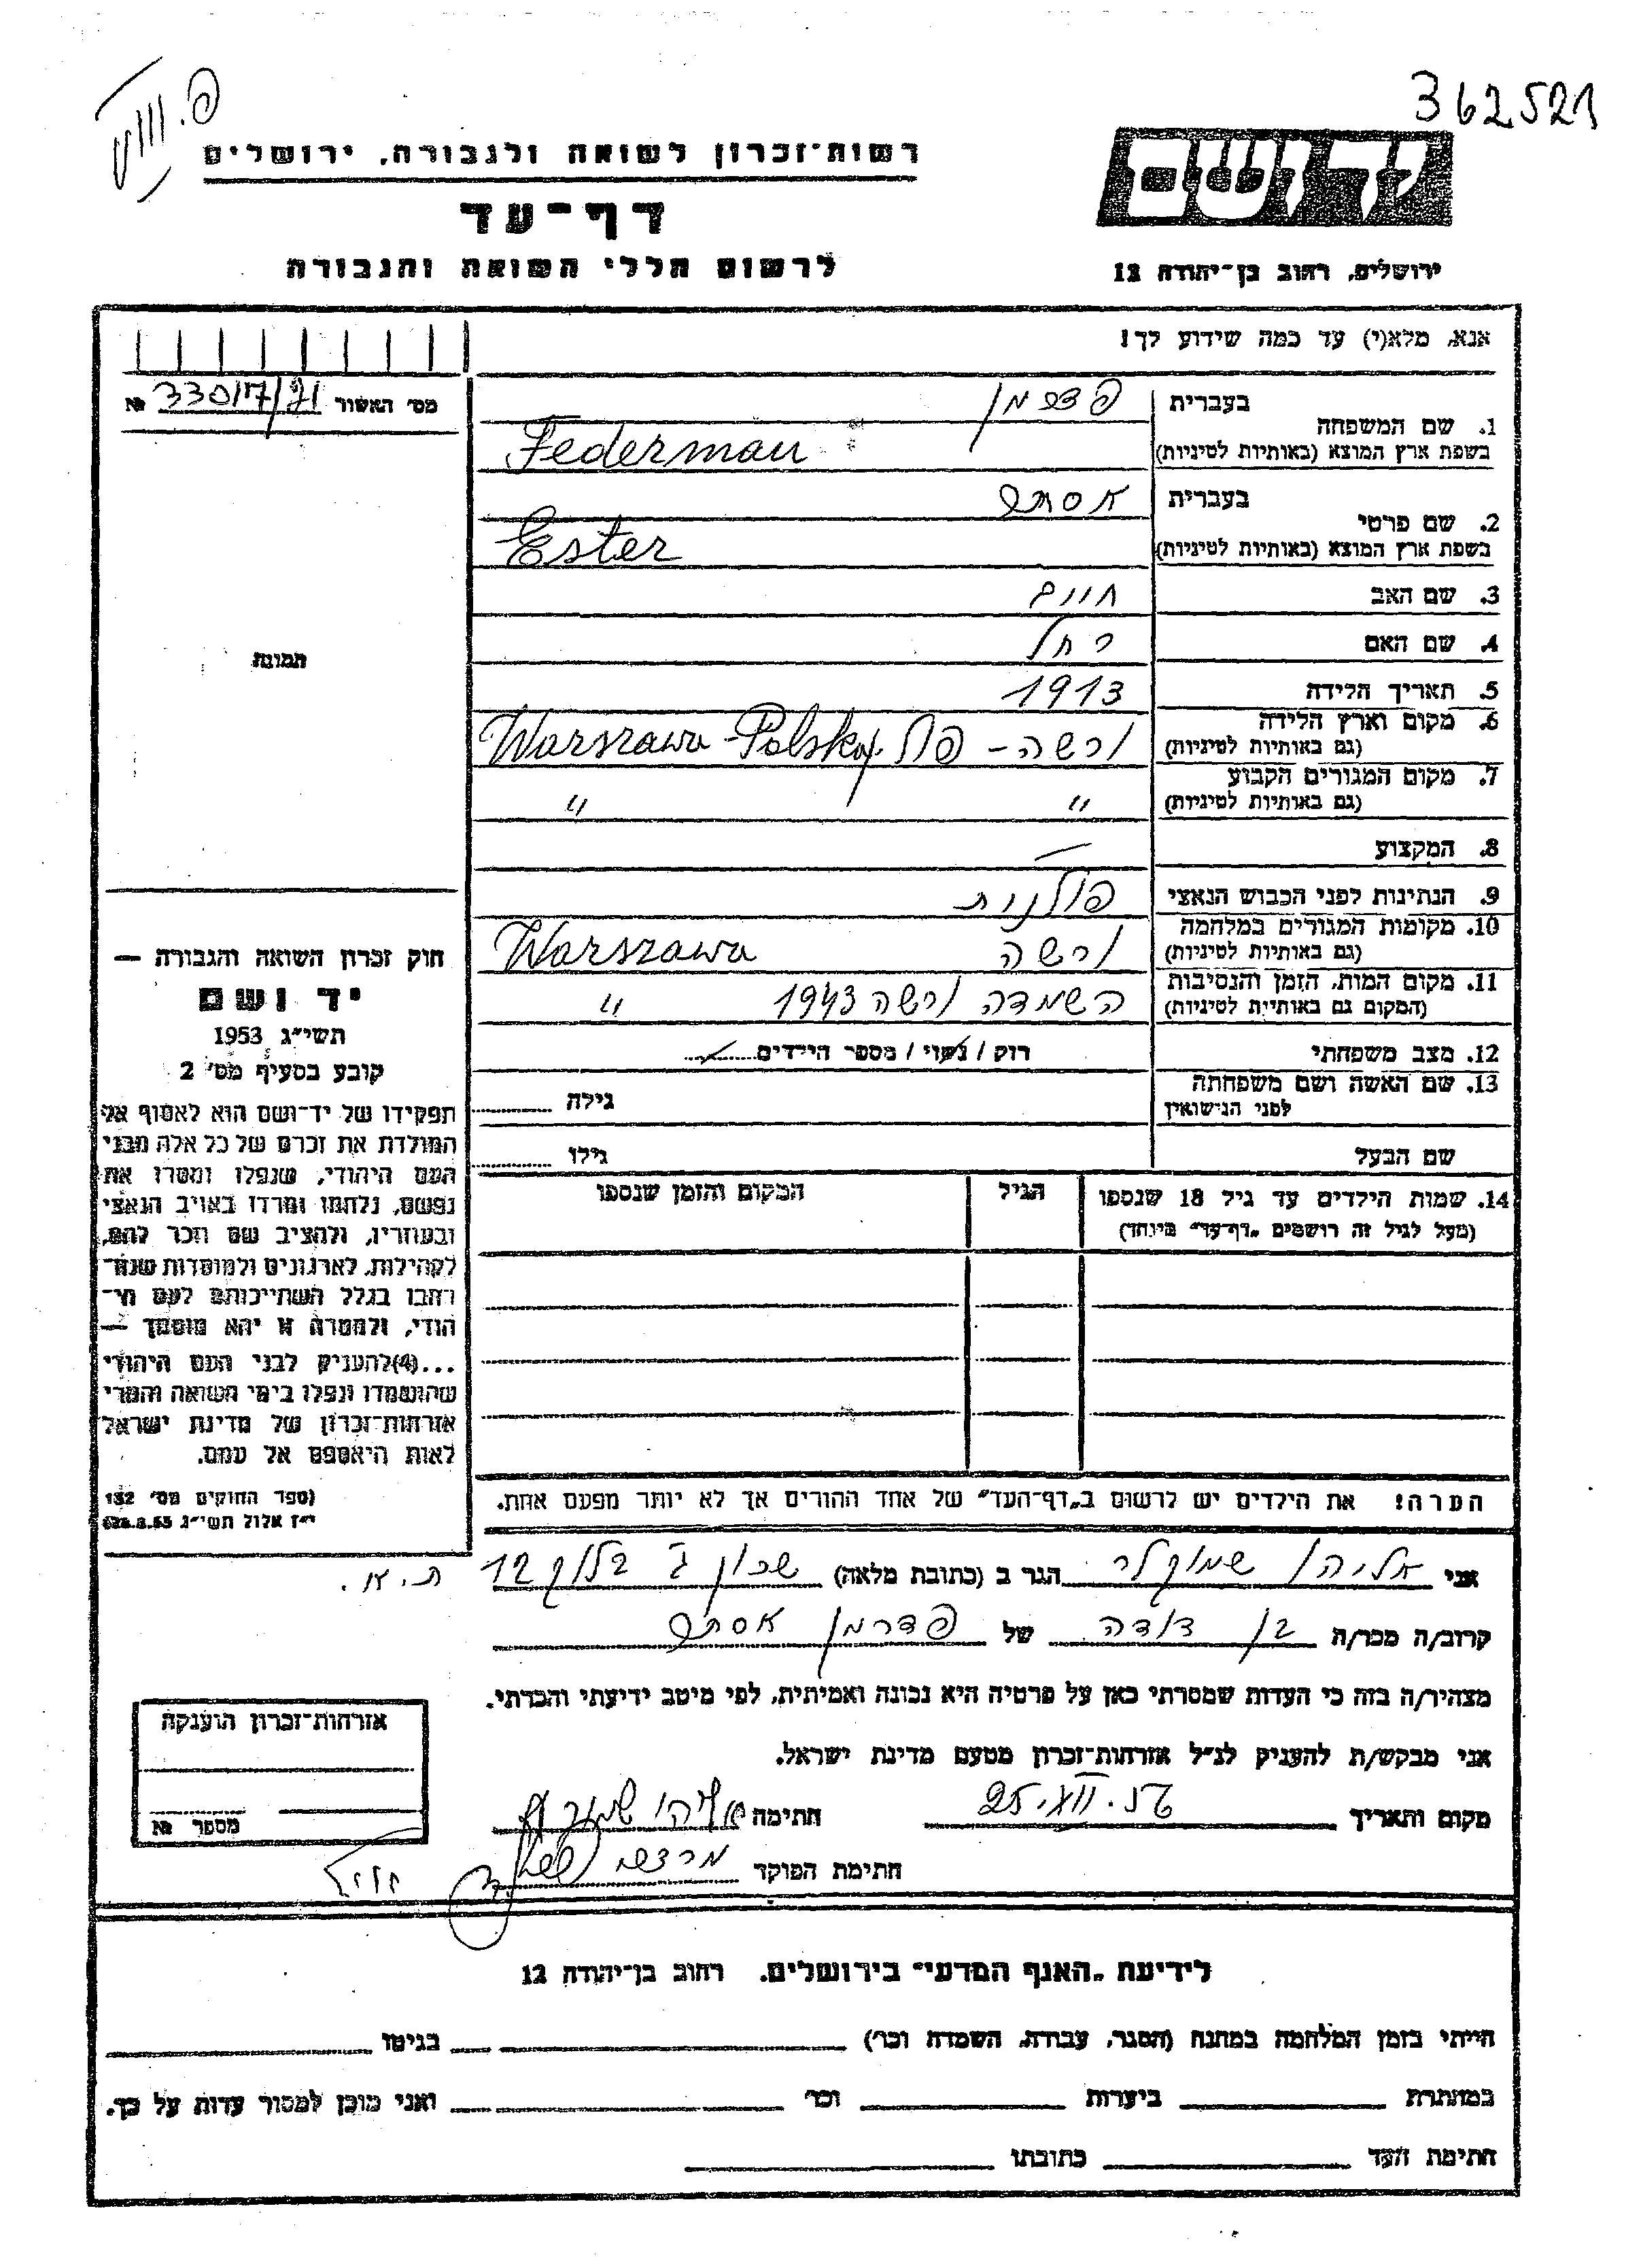 362521
רשות־זכרון לשואה ולגבורה, ירושלים
דף־עד
לרשום חללי השואה והגבורה
ירושלים, רחוב בן־יהודה 12
אנא, מלא(י) עד כמה שידוע לך!
מס׳ האשור № 33017/71
1. שם המשפחה
בעברית פדרמן
בשפת ארץ המוצא (באותיות לטיניות) Federman
2. שם פרטי
בעברית אסתר
בשפת ארץ המוצא (באותיות לטיניות) Ester
3. שם האב חיים
4. שם האם רחל
5. תאריך הלידה 1913
6. מקום וארץ הלידה ורשה – Warszawa-Polska
(גם באותיות לטיניות)
7. מקום המגורים הקבוע " "
(גם באותיות לטיניות)
8. המקצוע —
9. הנתינות לפני הכבוש הנאצי פולנית
10. מקומות המגורים במלחמה ורשה Warszawa
(גם באותיות לטיניות)
11. מקום המות, הזמן והנסיבות השמדה ורשה 1943 "
(המקום גם באותיות לטיניות)
12. מצב משפחתי רוק / נשוי / מספר הילדים
13. שם האשה ושם משפחתה
לפני הנישואין גילה
שם הבעל גילו
14. שמות הילדים עד גיל 18 שנספו הגיל המקום והזמן שנספו
(מעל לגיל זה רושמים „דף־עד" מיוחד)
תמונה
חוק זכרון השואה והגבורה —
יד ושם
תשי״ג 1953
קובע בסעיף מס׳ 2
תפקידו של יד־ושם הוא לאסוף אל
המולדת את זכרם של כל אלה מבני
העם היהודי, שנפלו ומסרו את
נפשם, נלחמו ומרדו באויב הנאצי
ובעוזריו, ולהציב שם וזכר להם,
לקהילות, לארגונים ולמוסדות שנח־
רבו בגלל השתייכותם לעם הי־
הודי, ולמטרה זו יהא מוסמך —
...(4) להעניק לבני העם היהודי
שהושמדו ונפלו בימי השואה והמרי
אזרחות־זכרון של מדינת ישראל
לאות היאספם אל עמם.
(ספר החוקים מס׳ 132
י״ז אלול תשי״ג 28.8.53)
הערה! את הילדים יש לרשום ב„דף־העד" של אחד ההורים אך לא יותר מפעם אחת.
אני אליהו שמוקלר הגר ב (כתובת מלאה) שכון ג׳ בלוק 12 ת.א.
קרוב/ה מכר/ה בן דודה של פדרמן אסתר
מצהיר/ה בזה כי העדות שמסרתי כאן על פרטיה היא נכונה ואמיתית, לפי מיטב ידיעתי והכרתי.
אני מבקש/ת להעניק לנ״ל אזרחות־זכרון מטעם מדינת ישראל.
מקום ותאריך חתימה
חתימת הפוקד
אזרחות־זכרון הוענקה
מספר №
לידיעת „האנף המדעי" בירושלים. רחוב בן־יהודה 12
הייתי בזמן המלחמה במחנה (הסגר, עבודה, השמדה וכו׳) בגיטו
במחתרת ביערות וכו׳ ואני מוכן למסור עדות על כך.
חתימת העד כתובתו